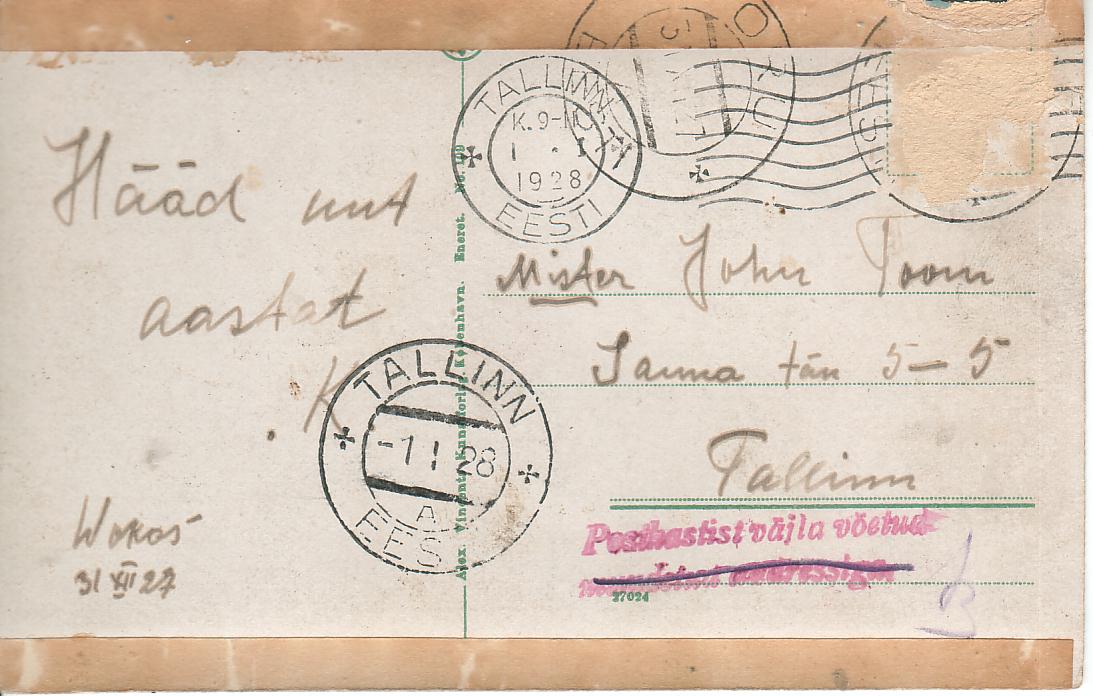 Hääd uut
aastat
K
Wokas
31 XII 27
Alex. Vincents Kunstforlag, København. Eneret. No. 109
TALLINN
K. 9-10
1 . I
1928
EESTI
EESTI
Mister John Toom
Sauna tän 5-5
Tallinn
TALLINN
-1 I 28
A
EESTI
Postkastist välja võetud
muudetud aadressiga
27024